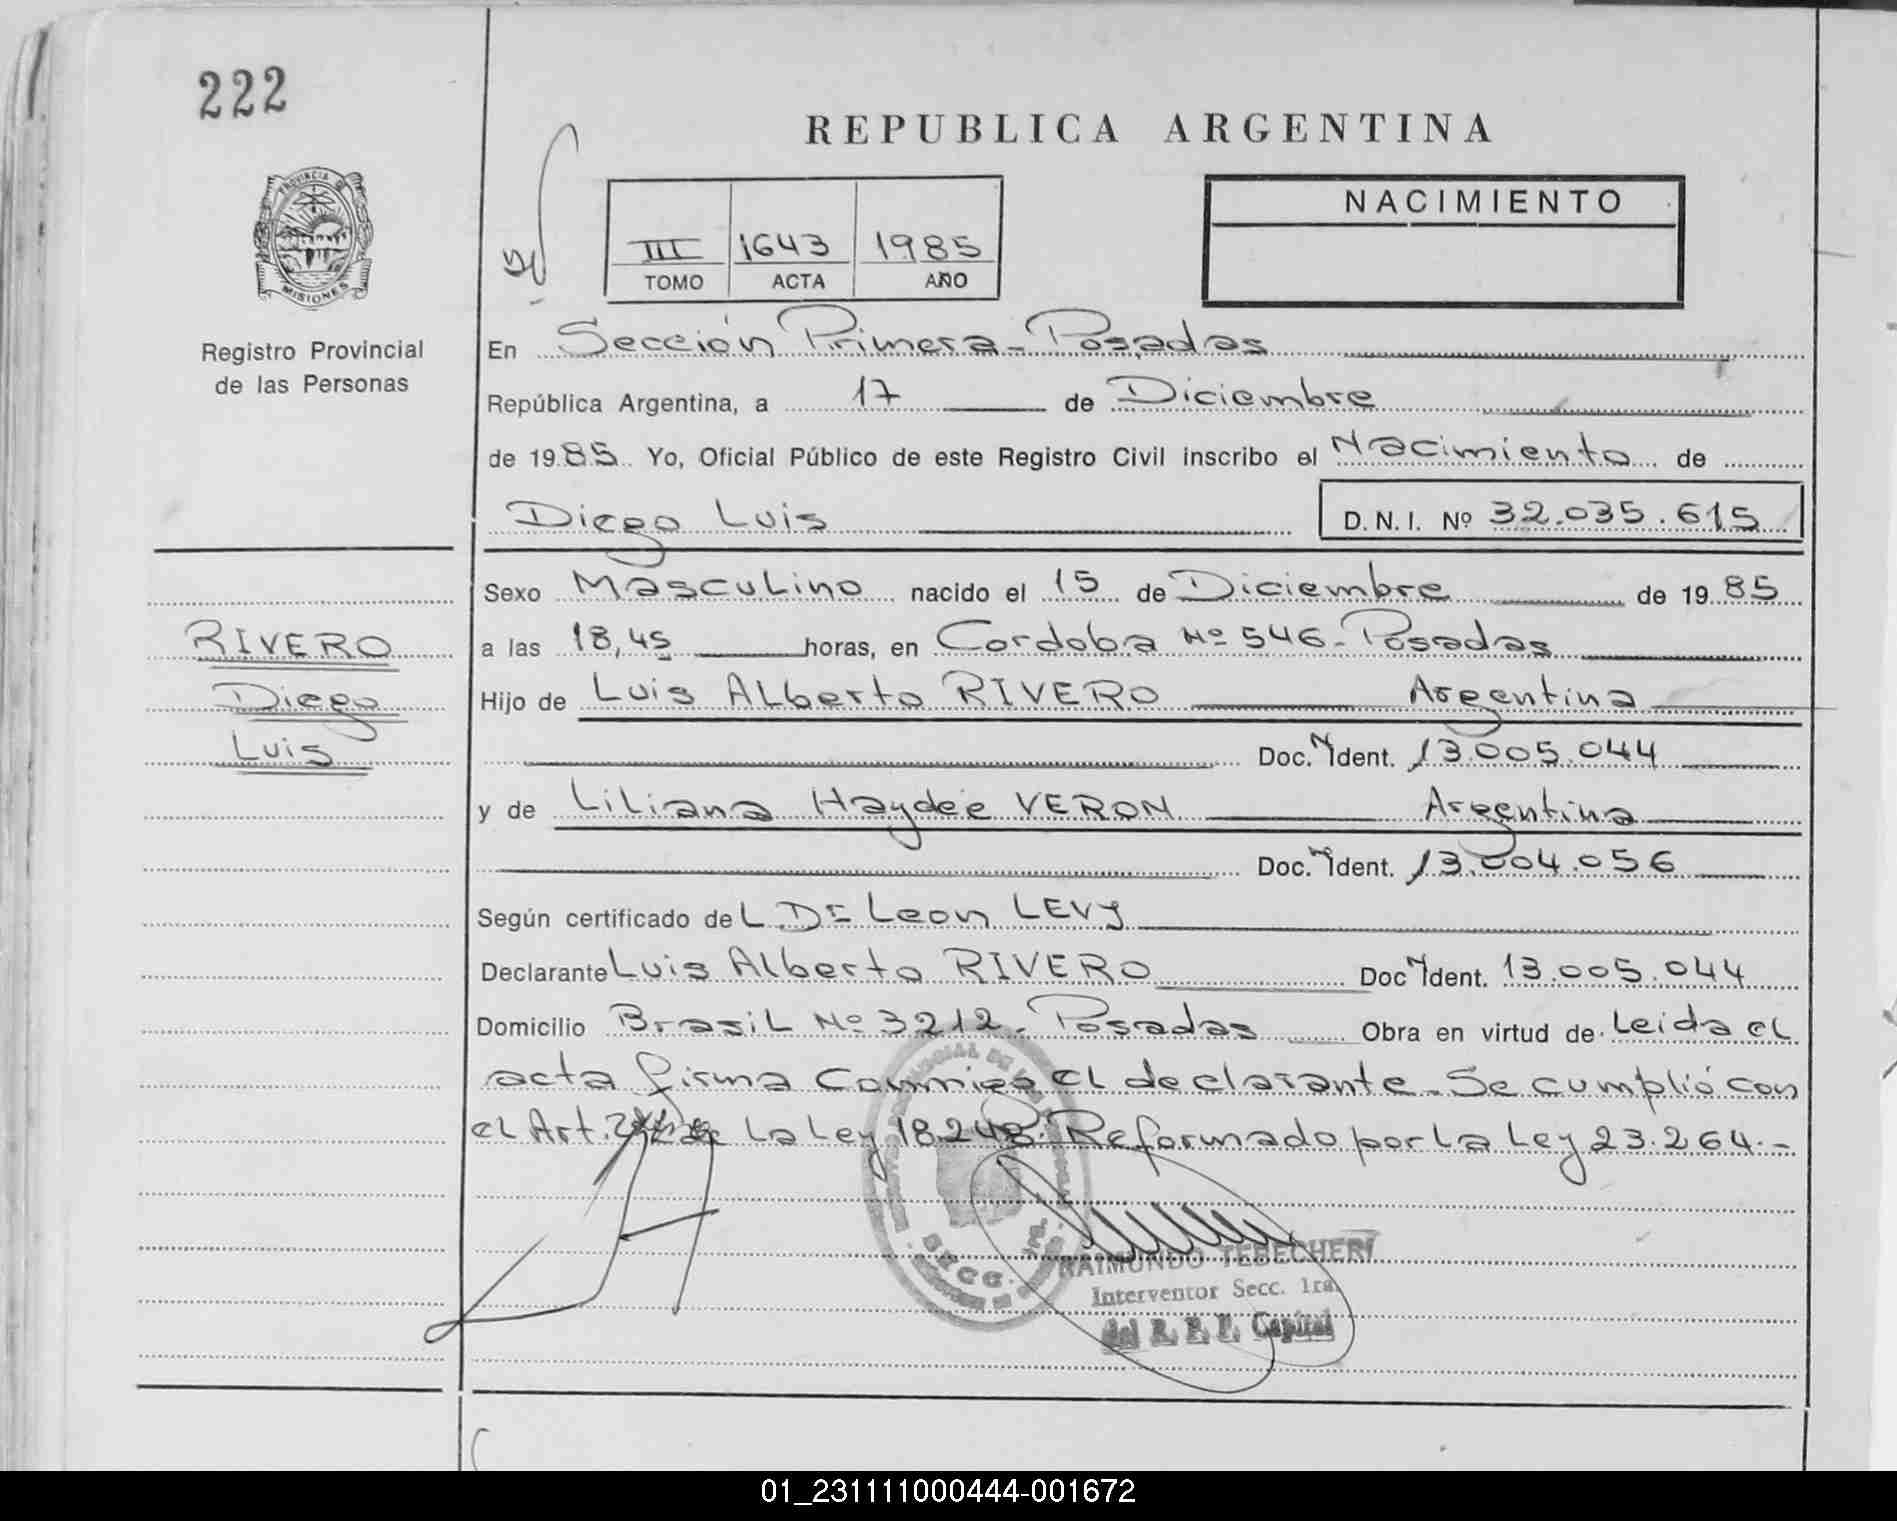 222
REPUBLICA ARGENTINA
PROVINCIA DE
MISIONES
Registro Provincial
de las Personas
III 1643 1985
TOMO ACTA AÑO
NACIMIENTO
En Sección Primera - Posadas
República Argentina, a 17 de Diciembre
de 1985. Yo, Oficial Público de este Registro Civil inscribo el Nacimiento de
Diego Luis D.N.I. Nº 32.035.615
Sexo Masculino nacido el 15 de Diciembre de 1985
RIVERO
Diego
Luis
a las 18,45 horas, en Cordoba Nº 546 - Posadas
Hijo de Luis Alberto RIVERO Argentina
Doc. N Ident. 13.005.044
y de Liliana Haydeé VERON Argentina
Doc. N Ident. 13.004.056
Según certificado del Dr Leon LEVY
Declarante Luis Alberto RIVERO Doc N Ident. 13.005.044
Domicilio Brasil Nº 3212 - Posadas Obra en virtud de Leida el
acta firma conmigo el declarante. Se cumplió con
el Art. la Ley 18.248. Reformado por la Ley 23.264.-
RAIMUNDO TEBECHERI
Interventor Secc. 1ra.
del R. P. P. Capital
01_231111000444-001672